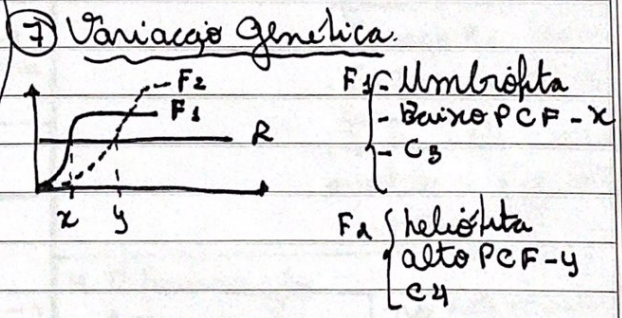 7 Variacção Genética.
F2
F1
R
x y
F1 - Umbrófita
- Baixo PCF - x
- C3
F2 heliófita
alto PCF - y
C4